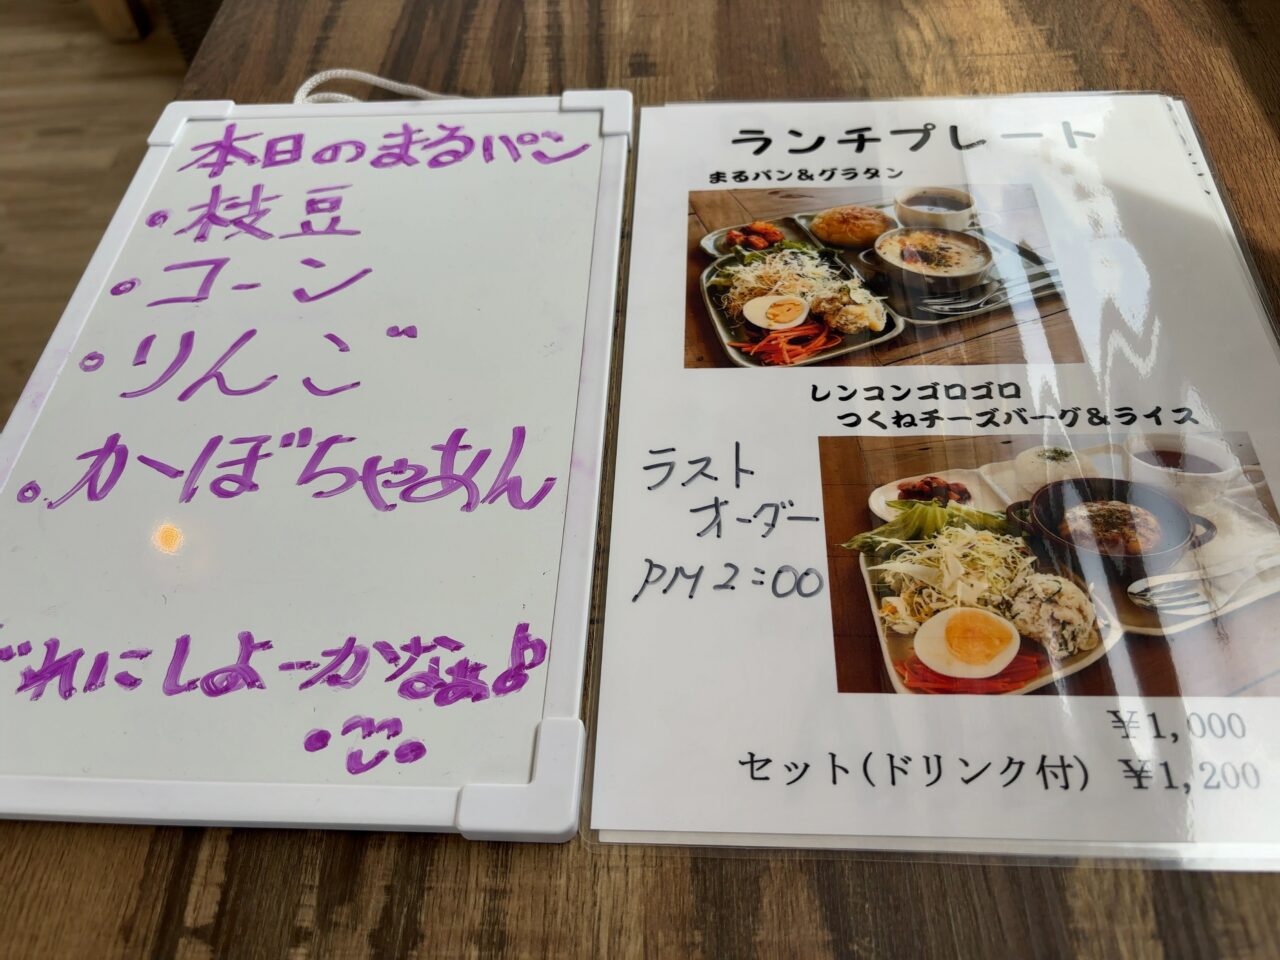 本日のまるパン
・枝豆
・コーン
・りんご
・かぼちゃあん
どれにしよーかなぁ♪
ランチプレート
まるパン&グラタン
レンコンゴロゴロ
つくねチーズバーグ&ライス
ラスト
オーダー
PM2:00
¥1,000
セット(ドリンク付) ¥1,200